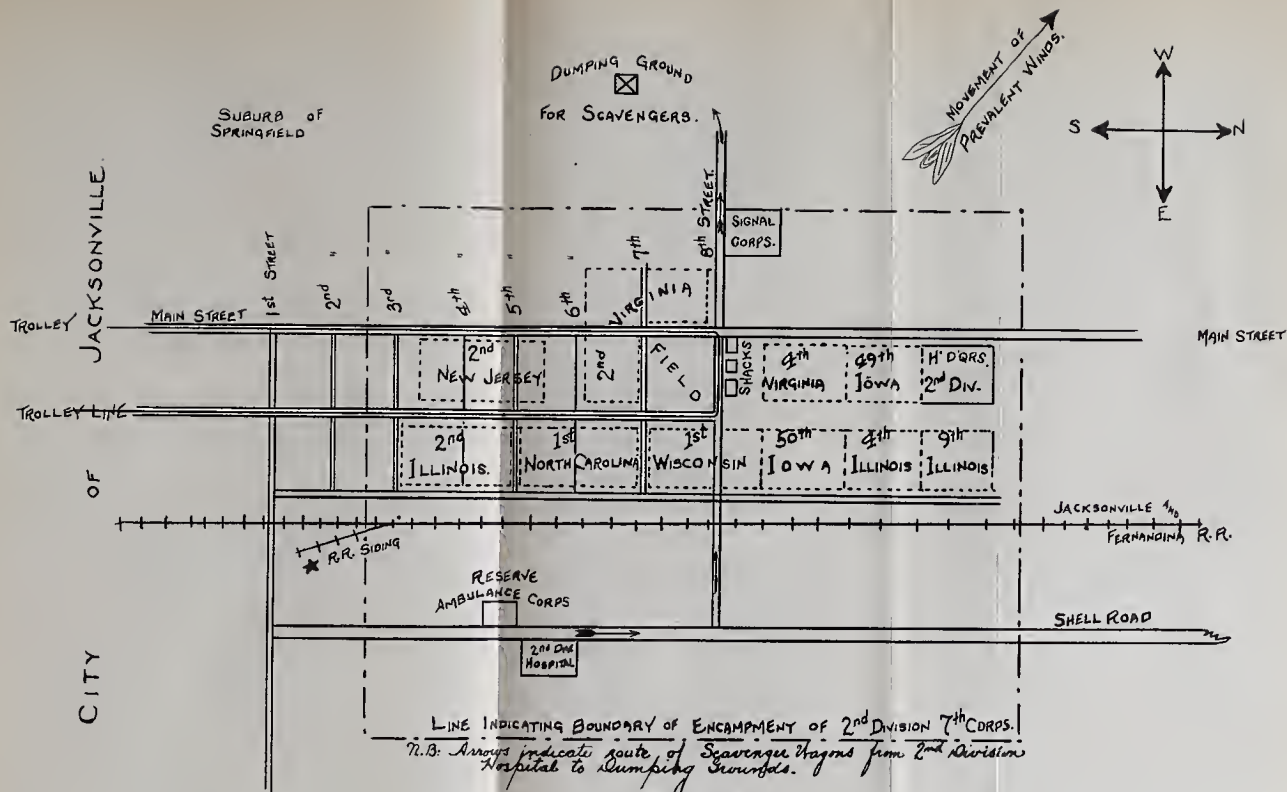 DUMPING GROUND
FOR SCAVENGERS.
MOVEMENT OF
PREVALENT WINDS.
W
S
N
E
SUBURB OF
SPRINGFIELD
CITY OF JACKSONVILLE.
1st STREET
2nd "
3rd
4th "
5th "
6th "
7th
8th STREET.
SIGNAL
CORPS.
VIRGINIA
TROLLEY
MAIN STREET
MAIN STREET
2nd
NEW JERSEY
2nd
FIELD
SHACKS
4th
VIRGINIA
49th
IOWA
H'DQRS.
2nd DIV.
TROLLEY LINE
2nd
ILLINOIS.
1st
NORTH CAROLINA
1st
WISCONSIN
50th
IOWA
4th
ILLINOIS
9th
ILLINOIS
JACKSONVILLE AND
FERNANDINA R.R.
R.R. SIDING
RESERVE
AMBULANCE CORPS
SHELL ROAD
2nd DIV.
HOSPITAL
LINE INDICATING BOUNDARY OF ENCAMPMENT OF 2nd DIVISION 7th CORPS.
N.B: Arrows indicate route of Scavenger Wagons from 2nd Division
Hospital to Dumping Grounds.